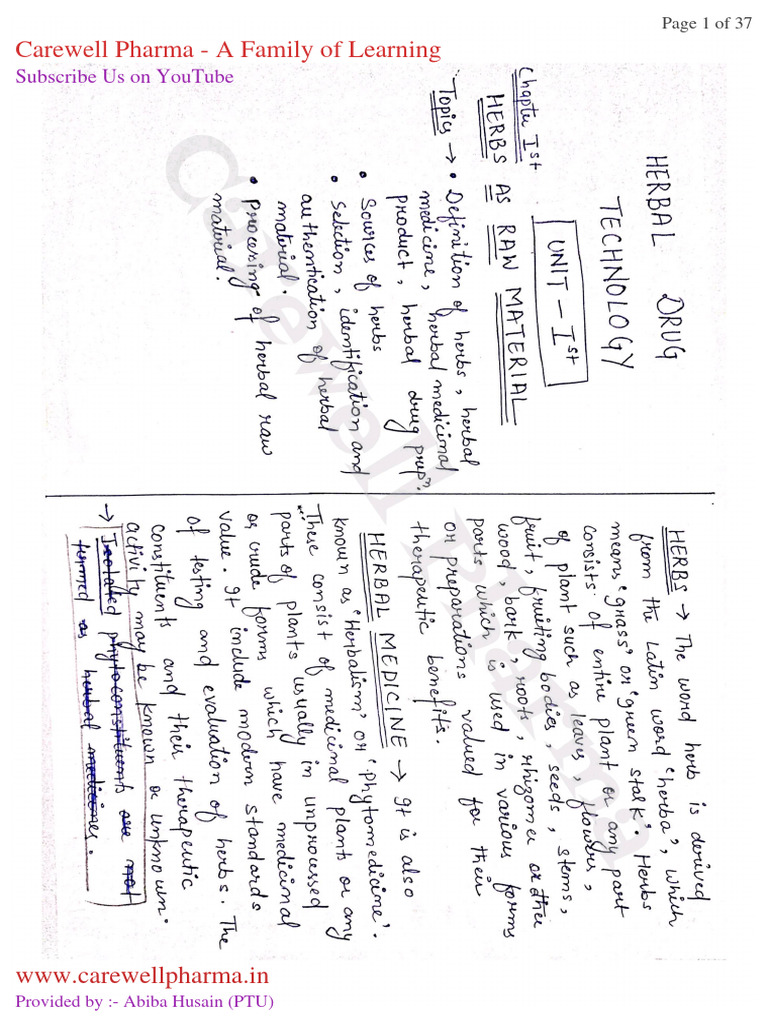 Page 1 of 37
Carewell Pharma - A Family of Learning
Subscribe Us on YouTube
HERBAL DRUG
TECHNOLOGY
UNIT - Ist
Chapter Ist
HERBS AS RAW MATERIAL
Topics → • Definition of herbs, herbal
medicine, herbal medicinal
product, herbal drug prepn.
• Sources of herbs
• selection, identification and
authentication of herbal
material.
• Processing of herbal raw
material.
HERBS → The word herb is derived
from the Latin word 'herba', which
means 'grass' or 'green stalk'. Herbs
consists of entire plant or any part
of plant such as leaves, flowers,
fruit, fruiting bodies, seeds, stems,
wood, bark, roots, rhizomes or other
parts which is used in various forms
or preparations valued for their
therapeutic benefits.
HERBAL MEDICINE → It is also
known as 'Herbalism' or 'phytomedicine'.
These consist of medicinal plants or any
parts of plants usually in unprocessed
or crude forms which have medicinal
value. It include modern standards
of testing and evaluation of herbs. The
constituents and their therapeutic
activity may be known or unknown.
→ Isolated phytoconstituents are not
termed as herbal medicines.
Carewell Pharma
www.carewellpharma.in
Provided by :- Abiba Husain (PTU)